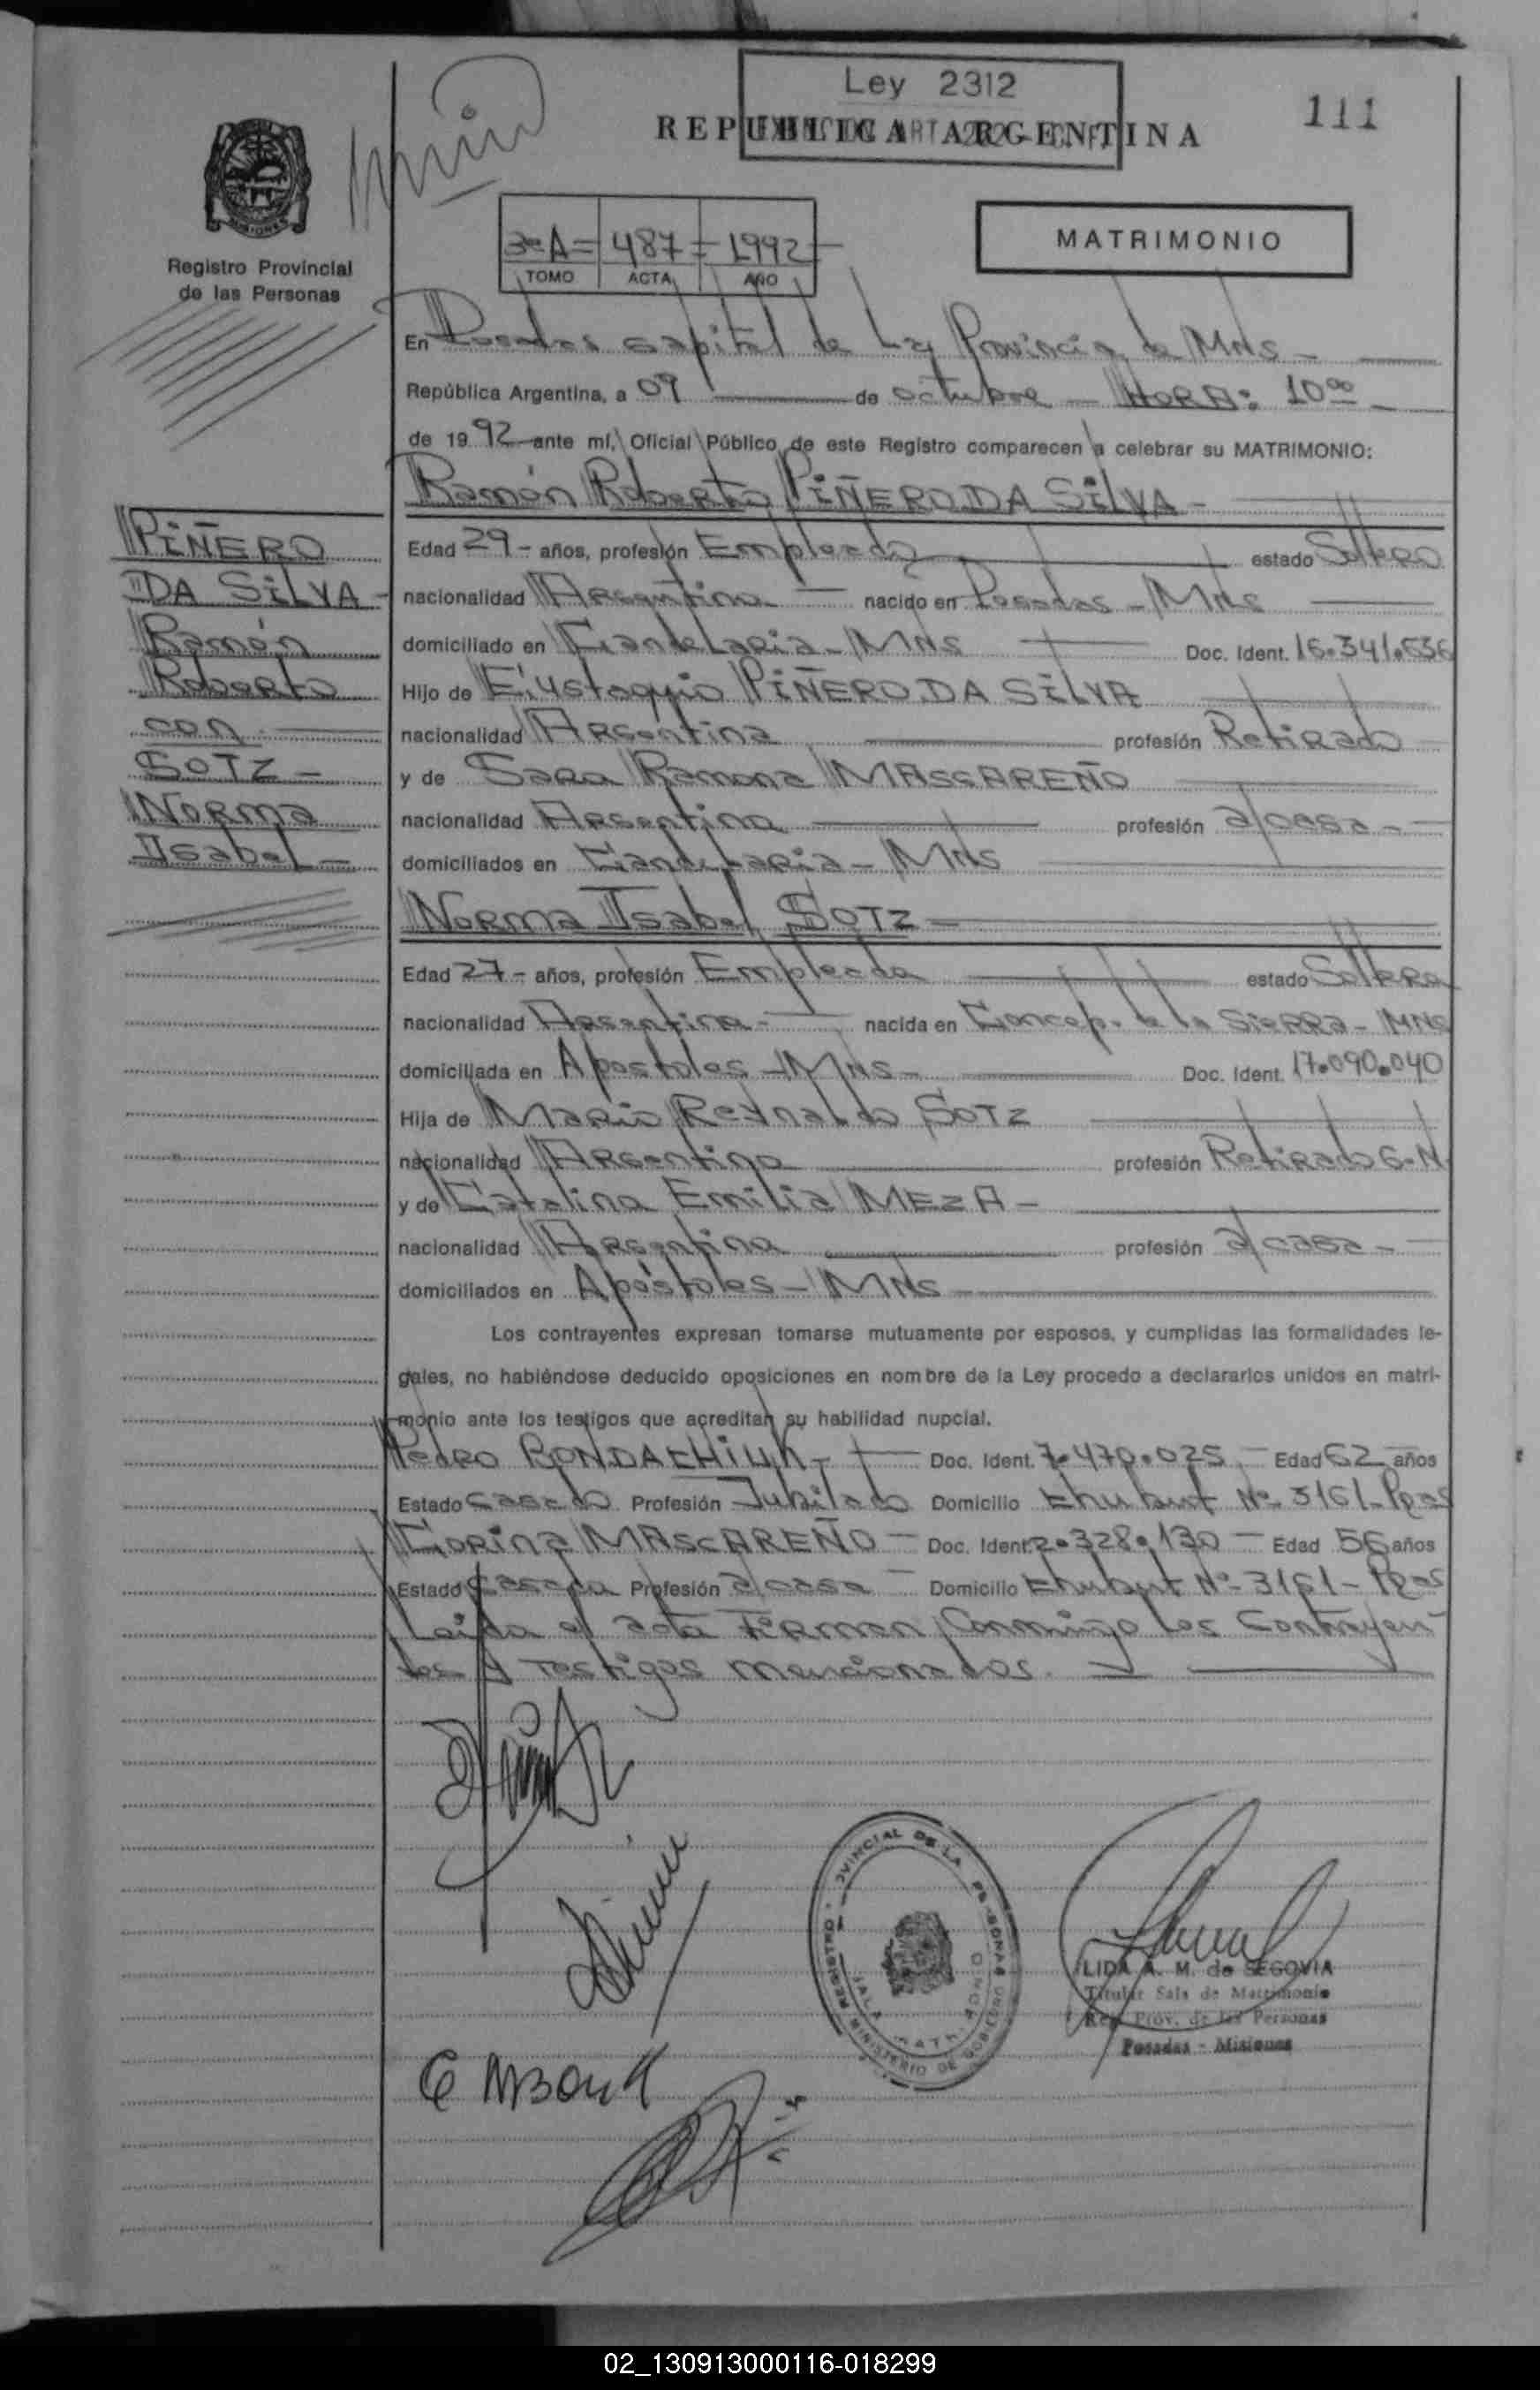 Ley 2312
REPUBLICA ARGENTINA
111
MISIONES
Registro Provincial
de las Personas
3º A = 487 = 1992
TOMO ACTA AÑO
MATRIMONIO
En Posadas capital de la Provincia de Mns -
República Argentina, a 09 de octubre - HORA: 10⁰⁰ -
de 19 92 ante mí, Oficial Público de este Registro comparecen a celebrar su MATRIMONIO:
Ramón Roberto PIÑERO DA SILVA -
PIÑERO
DA SILVA -
Ramón
Roberto
con
SOTZ -
Norma
Isabel -
Edad 29 - años, profesión Empleado estado Soltero
nacionalidad Argentina - nacido en Posadas - Mns
domiciliado en Candelaria - Mns Doc. Ident. 16.341.636
Hijo de Eustaquio PIÑERO DA SILVA
nacionalidad Argentina profesión Retirado
y de Sara Ramona MASCAREÑO
nacionalidad Argentina profesión a/casa -
domiciliados en Candelaria - Mns
Norma Isabel SOTZ -
Edad 27 - años, profesión Empleada estado Soltera
nacionalidad Argentina - nacida en Concep. de la Sierra - Mns
domiciliada en Apostoles - Mns - Doc. Ident. 17.090.040
Hija de Mario Reynaldo SOTZ
nacionalidad Argentina profesión Retirado G.N
y de Catalina Emilia MEZA -
nacionalidad Argentina profesión a/casa -
domiciliados en Apóstoles - Mns
Los contrayentes expresan tomarse mutuamente por esposos, y cumplidas las formalidades le-
gales, no habiéndose deducido oposiciones en nombre de la Ley procedo a declararlos unidos en matri-
monio ante los testigos que acreditan su habilidad nupcial.
Pedro Doc. Ident. 7.470.025 - Edad 62 años
Estado Casado Profesión Jubilado Domicilio Chubut Nº 3161 - Pdas
Corina MASCAREÑO - Doc. Ident. 2.328.130 - Edad 56 años
Estado Casada Profesión a/casa - Domicilio Chubut Nº 3161 - Pdas
Leída el acta firman conmigo los contrayen
tes y testigos mencionados.
REGISTRO PROVINCIAL DE LAS PERSONAS
SALA MATRIMONIO
MINISTERIO DE GOBIERNO
LIDA A. M. de SEGOVIA
Titular Sala de Matrimonio
Reg. Prov. de las Personas
Posadas - Misiones
02_130913000116-018299